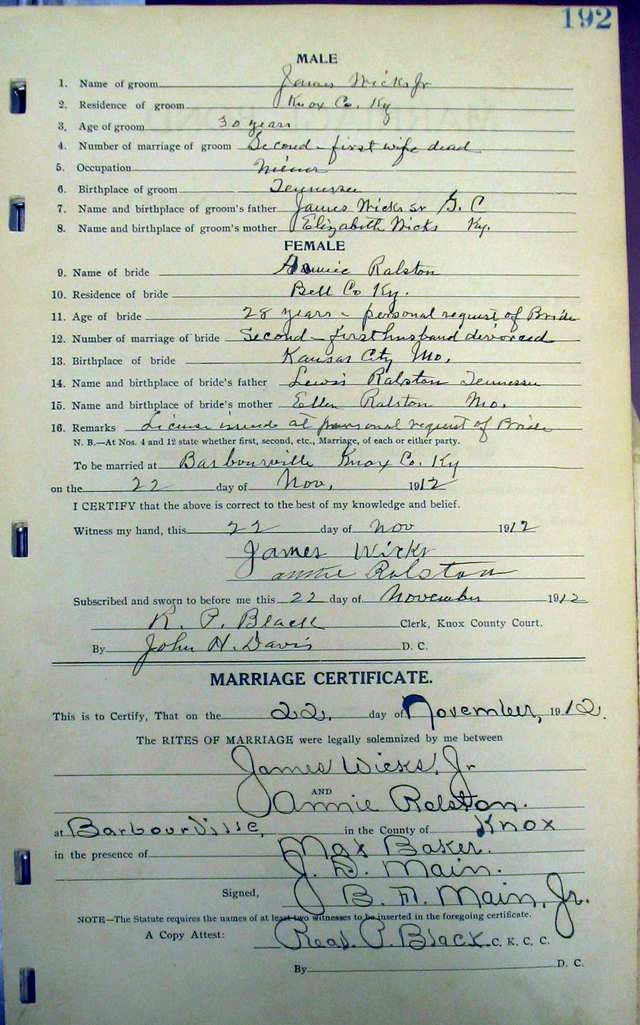 192
MALE
1. Name of groom James Wicks Jr
2. Residence of groom Knox Co. Ky
3. Age of groom 30 years
4. Number of marriage of groom Second - first wife dead
5. Occupation Miner
6. Birthplace of groom Tennessee
7. Name and birthplace of groom's father James Wicks sr
8. Name and birthplace of groom's mother Elizabeth Wicks Ky.
FEMALE
9. Name of bride Annie Ralston
10. Residence of bride Bell Co Ky.
11. Age of bride 28 years - personal request of Bride
12. Number of marriage of bride Second - first husband divorced
13. Birthplace of bride Kansas City Mo.
14. Name and birthplace of bride's father Lewis Ralston Tennessee
15. Name and birthplace of bride's mother Ellen Ralston Mo.
16. Remarks License issude at personal request of Bride
N. B.—At Nos. 4 and 12 state whether first, second, etc., Marriage, of each or either party.
To be married at Barbourville Knox Co. Ky
on the 22 day of Nov. 1912
I CERTIFY that the above is correct to the best of my knowledge and belief.
Witness my hand, this 22 day of Nov 1912
James Wicks
Annie Ralston
Subscribed and sworn to before me this 22 day of November 1912
R. P. Black Clerk, Knox County Court.
By John H. Davis D. C.
MARRIAGE CERTIFICATE.
This is to Certify, That on the 22. day of November, 1912.
The RITES OF MARRIAGE were legally solemnized by me between
James Wicks, Jr
AND
Annie Ralston.
at Barbourville, in the County of Knox
in the presence of Max Baker.
J. D. Main.
Signed, B. H. Main, Jr.
NOTE—The Statute requires the names of at least two witnesses to be inserted in the foregoing certificate.
A Copy Attest: Read. P. Black. C. K. C. C.
By D. C.